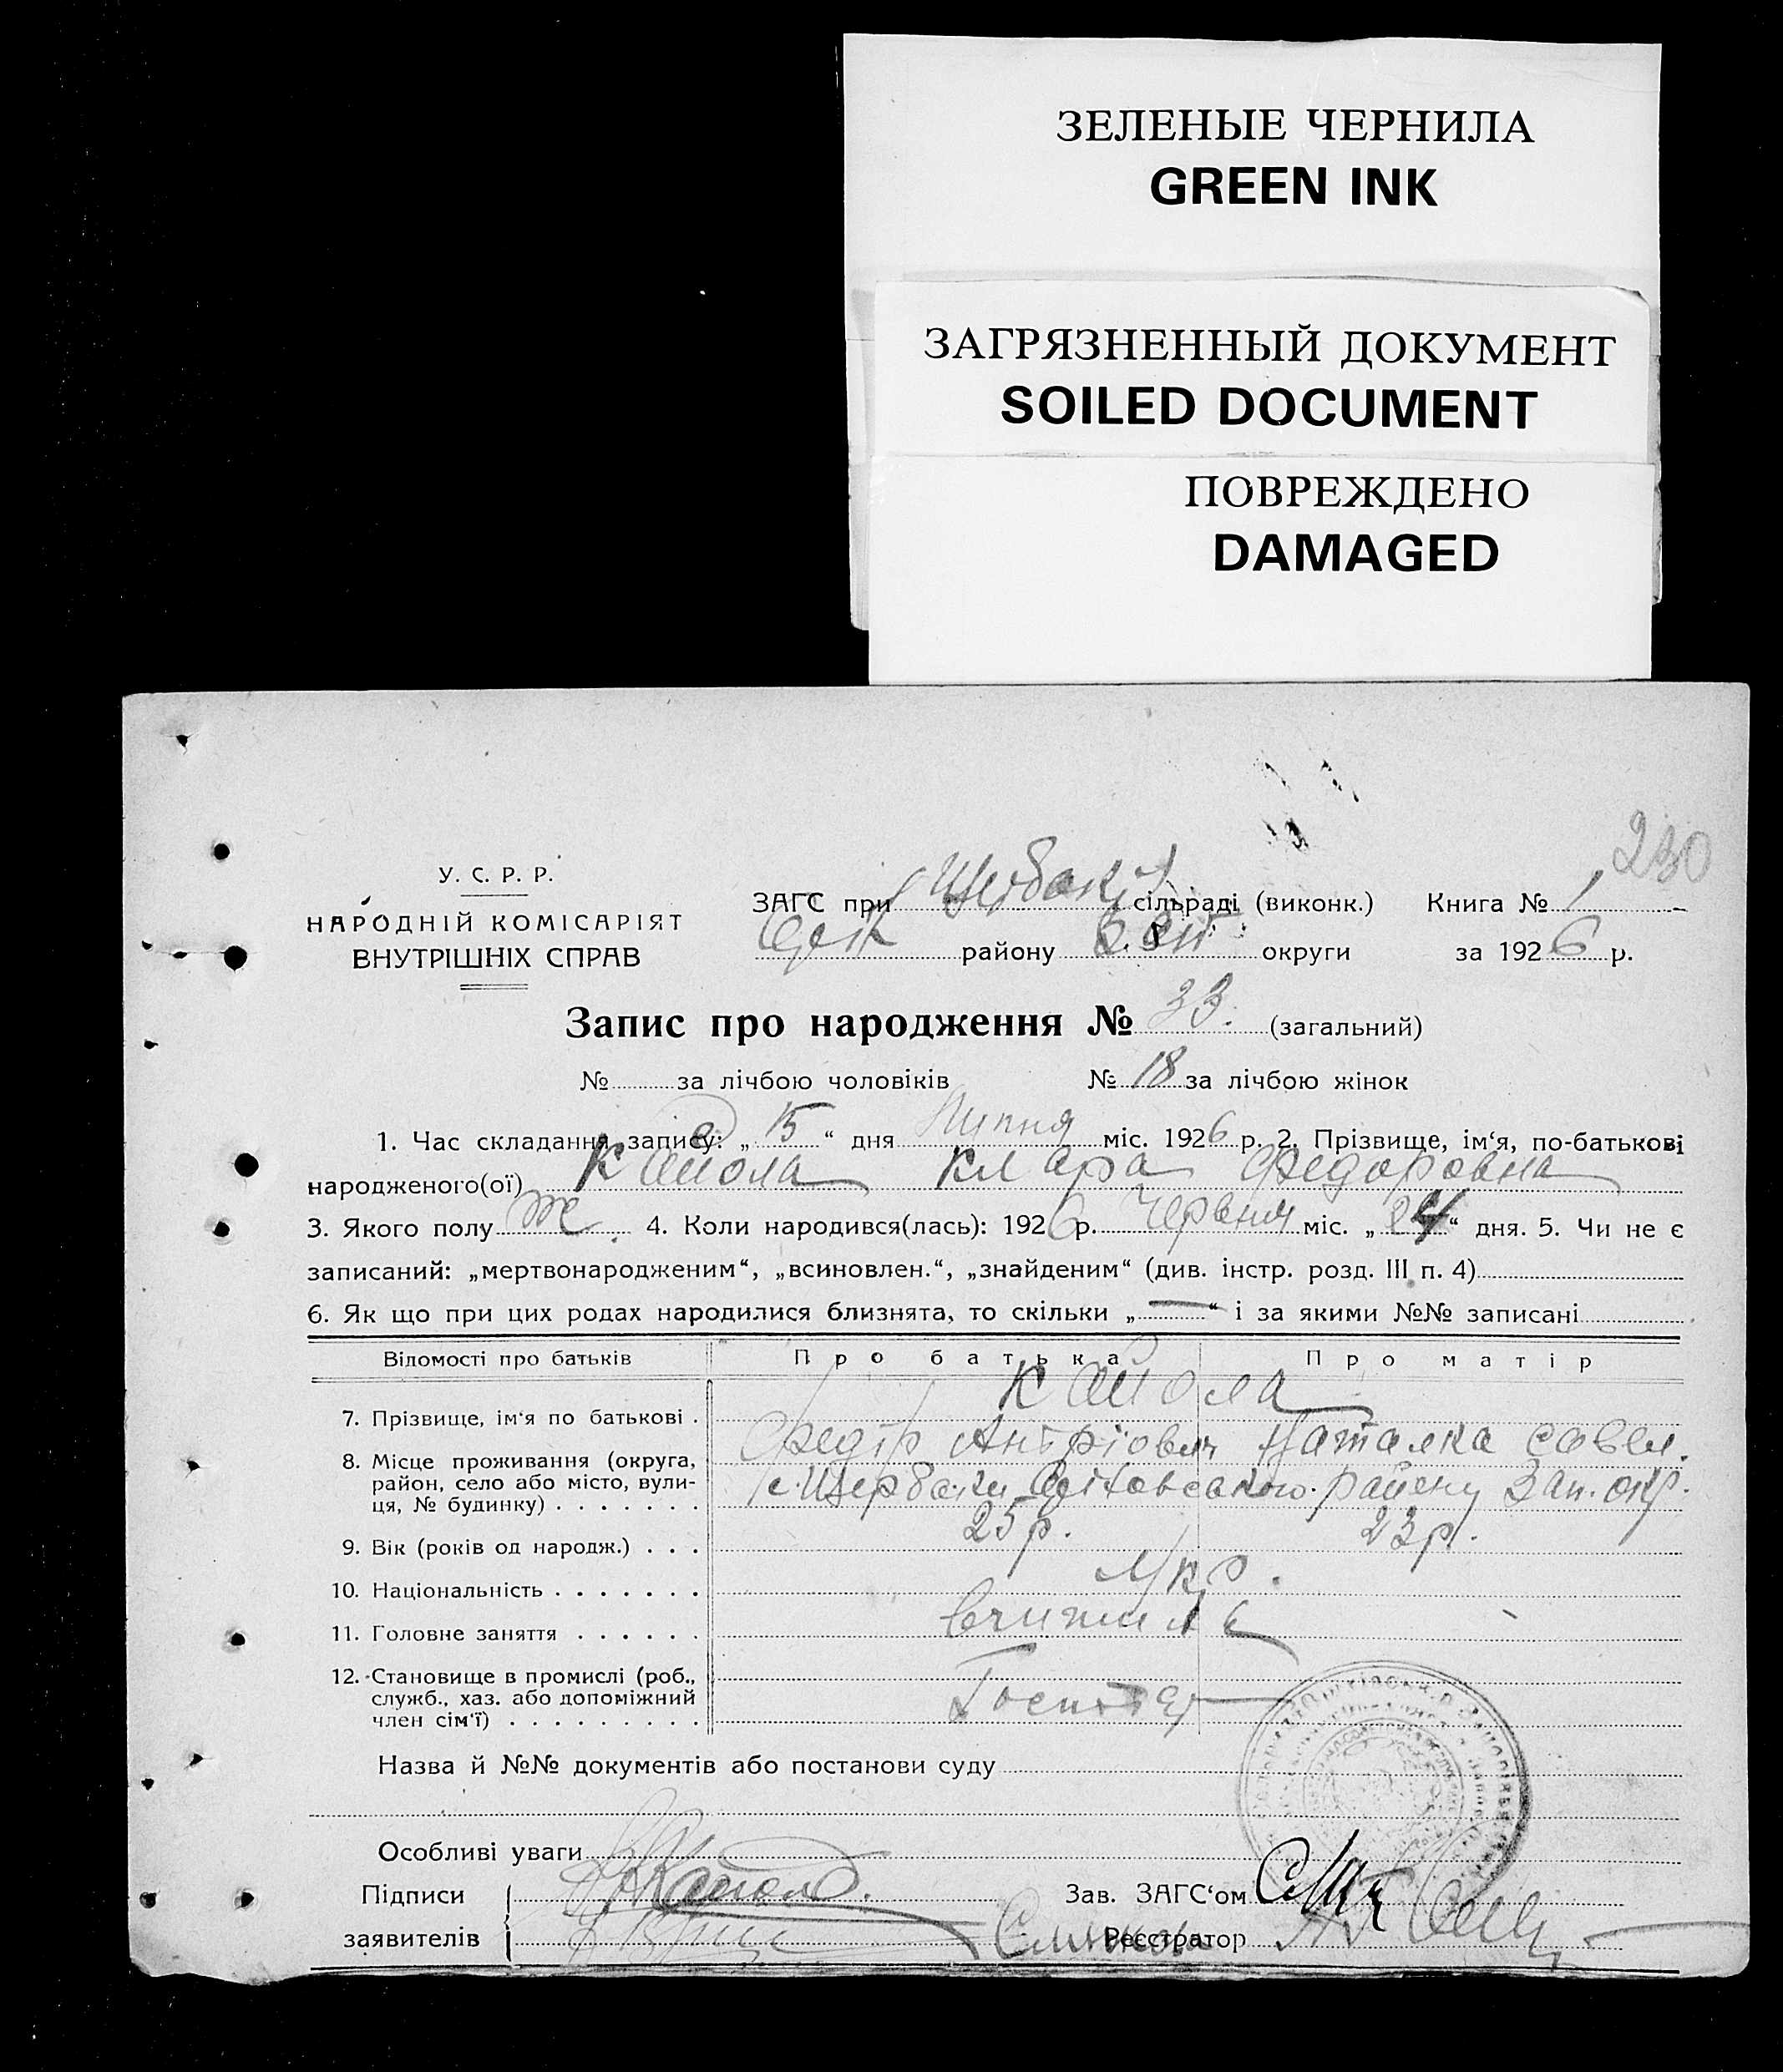 ЗЕЛЕНЫЕ ЧЕРНИЛА
GREEN INK
ЗАГРЯЗНЕННЫЙ ДОКУМЕНТ
SOILED DOCUMENT
ПОВРЕЖДЕНО
DAMAGED
230
У. С. Р. Р.
НАРОДНІЙ КОМІСАРІЯТ
ВНУТРІШНІХ СПРАВ
ЗАГС при сільраді (виконк.) Книга № 1
району округи за 1926 р.
Запис про народження № 33. (загальний)
№ за лічбою чоловіків № 18 за лічбою жінок
1. Час складання запису: „15“ дня Липня міс. 1926 р. 2. Прізвище, ім‘я, по-батькові
народженого(ої) Клара Федоровна
3. Якого полу Ж. 4. Коли народився(лась): 1926 р. Червня міс. „24“ дня. 5. Чи не є
записаний: „мертвонародженим“, „всиновлен.“, „знайденим“ (див. інстр. розд. III п. 4)
6. Як що при цих родах народилися близнята, то скільки „—“ і за якими №№ записані
Відомості про батьків Про батька Про матір
7. Прізвище, ім‘я по батькові .
Федір Наталка Савел.
8. Місце проживання (округа, район, село або місто, вулиця, № будинку) . . . . . . .
с. Щербаки району Зап. окр.
9. Вік (років од народж.) . . . 25 р. 23 р.
10. Національність . . . . . . . Укр.
11. Головне заняття . . . . . .
12. Становище в промислі (роб., служб., хаз. або допоміжний член сім‘ї) . . . . . . . . .
Назва й №№ документів або постанови суду
Особливі уваги
Підписи заявителів
Зав. ЗАГС‘ом
Реєстратор